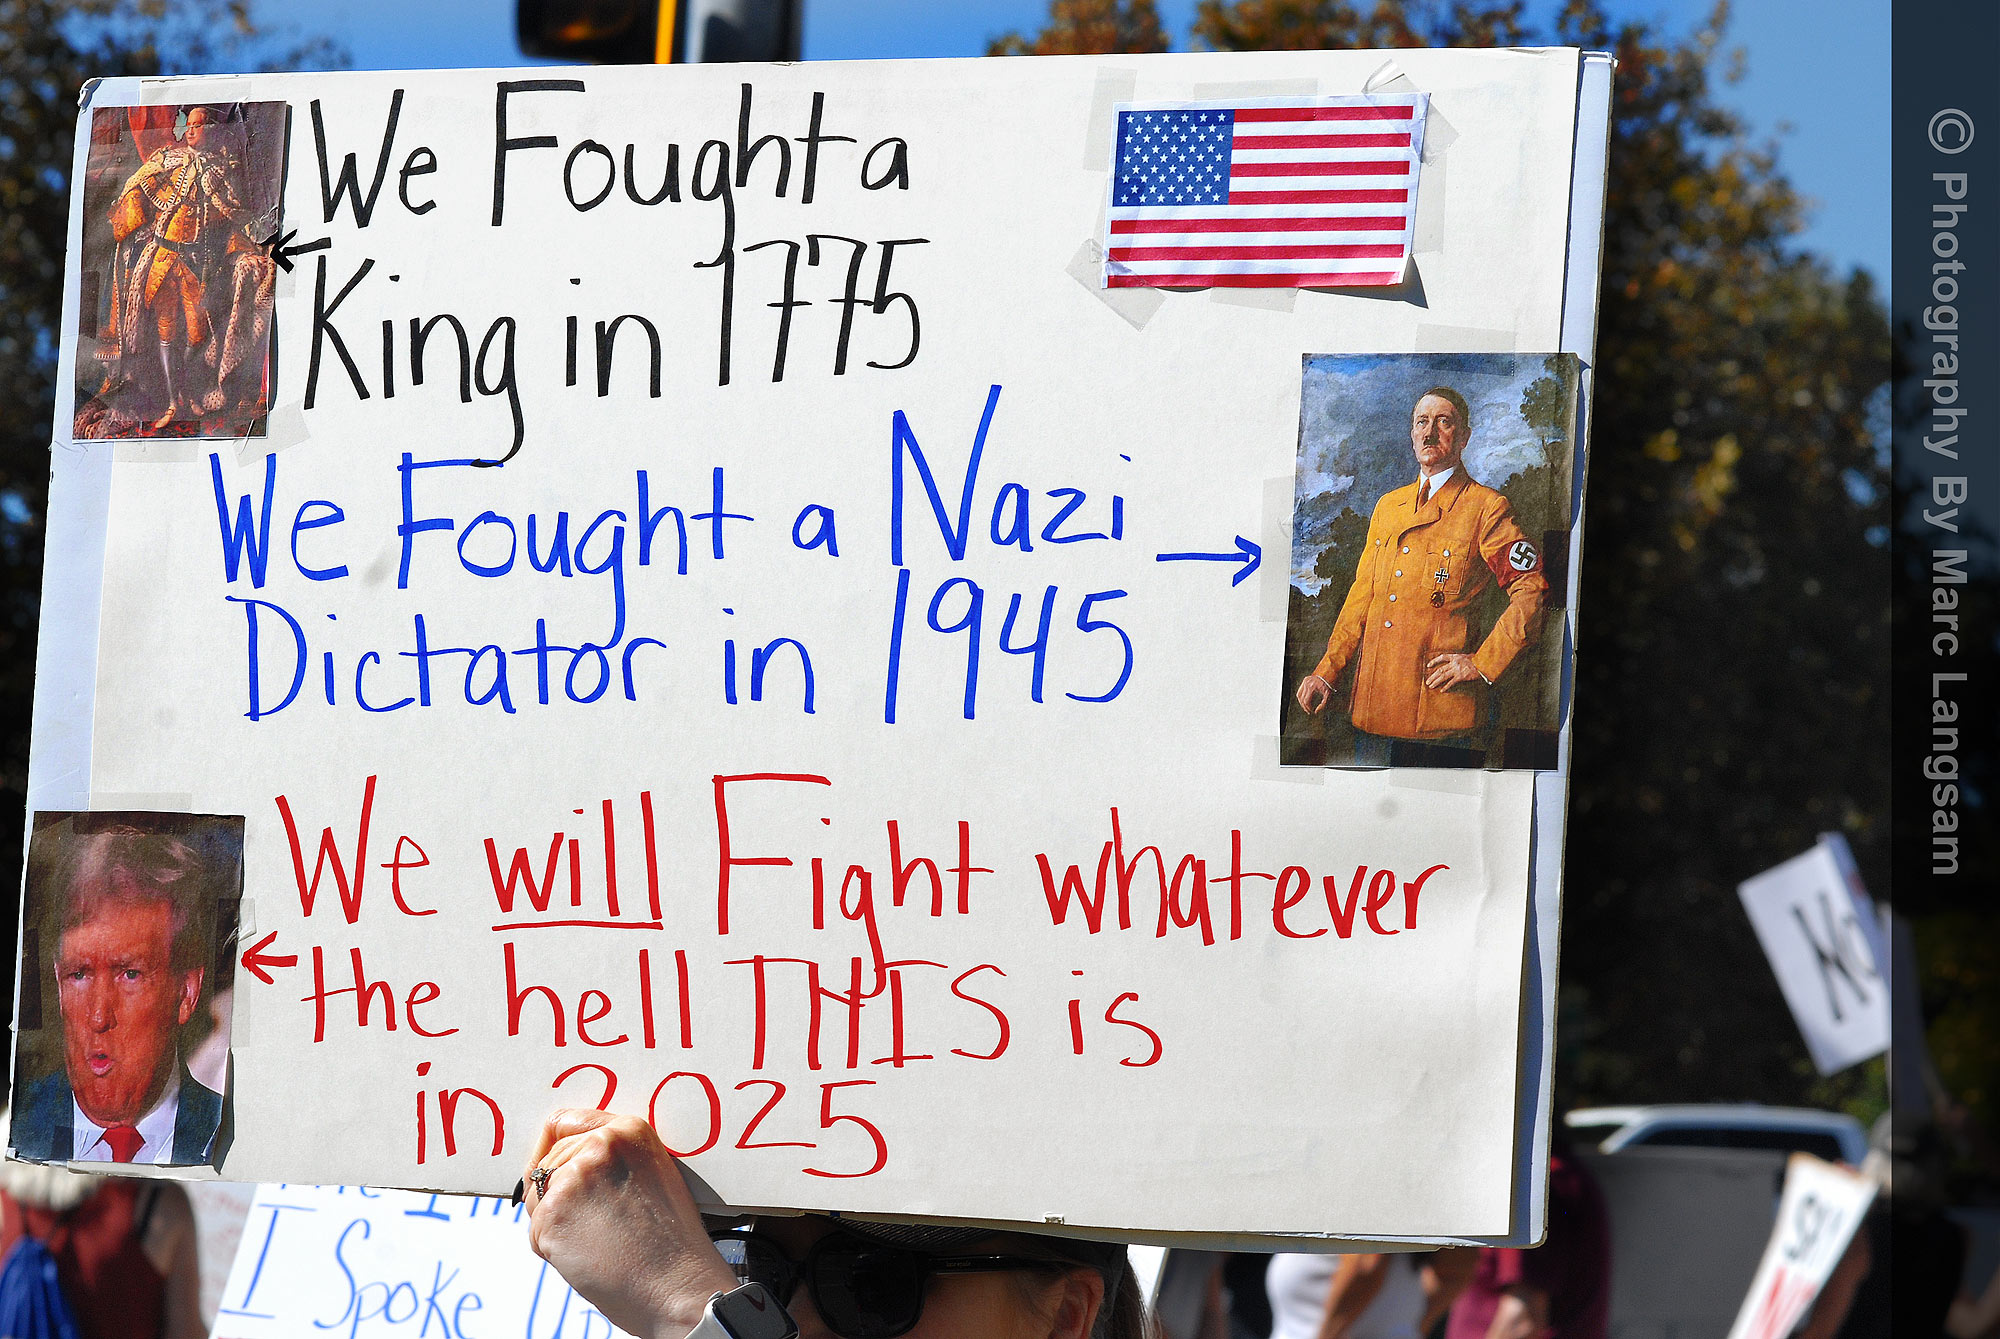 We Fought a
King in 1775
We Fought a Nazi
Dictator in 1945
We will Fight whatever
the hell THIS is
in 2025
I Spoke Up
© Photography By Marc Langssam